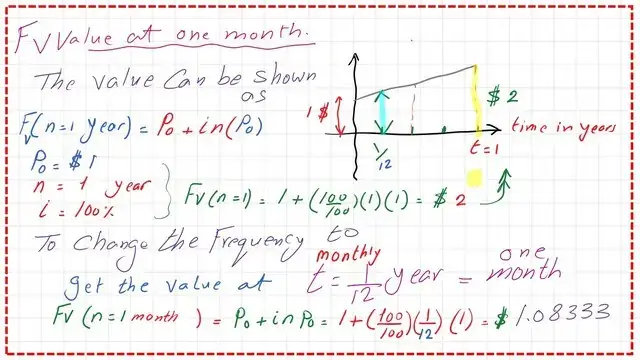 FV Value at one month.
The value can be shown
as
FV(n=1 year) = P₀ + in(P₀)
P₀ = $1
n = 1 year
i = 100%
FV(n=1) = 1 + (100/100)(1)(1) = $ 2
1 $
$ 2
1/12
t=1
time in years
To Change the Frequency to
monthly
get the value at t = 1/12 year = one month
FV (n=1 month) = P₀ + in P₀ = 1 + (100/100)(1/12)(1) = $ 1.08333